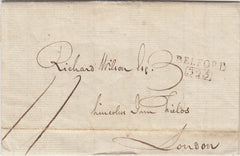 Richard Wilson Esqr
BELFORD
Lincolns Inn Fields
London